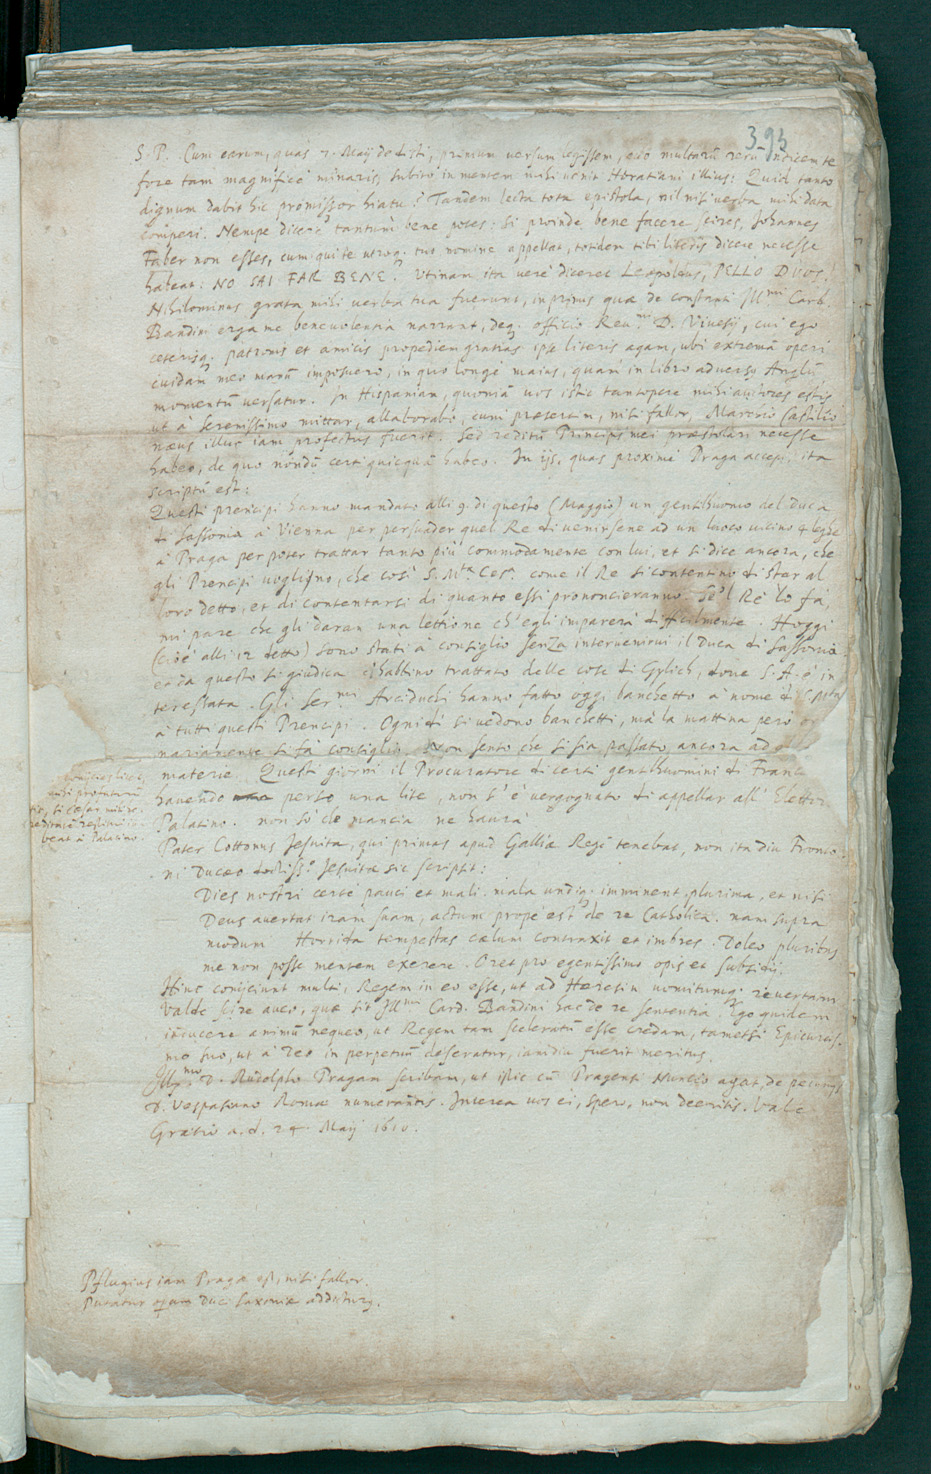 393
S. P. Cum earum, quas 7. Maij dedisti, primum versum legissem, quo multarũ rerũ Indicem te
fore tam magnificè minaris, subitò in mentem mihi venit Horatiani illius: Quid tanto
dignum dabit hic promissor hiatu? Tandem lecta tota epistola, nil nisi verba mihi data
comperi. Nempe dicere tantum bene potes: si proinde bene facere scires, Johannes
Faber non esses, cum quite utroq; tuo nomine appellat, totidem tibi literis dicere necesse
habeat: NO SAI FAR BENE. Utinam ita verè diceret Leopoldus, PELLO DUOS!
Nihilominus grata mihi verba tua fuerunt, inprimis quæ de constanti Ill.mi Card.
Bandini erga me benevolentia narrant, deq; officio Reu.mi D. Vivesij, cui ego
ceterisq; patronis et amicis propediem gratias ipse literis agam, ubi extremã operi
cuidam meo manũ imposuero, in quo longè maius, quàm in libro adverso Anglũ
momentũ versatur. In Hispaniam, quoniã vos istic tantopere mihi autores estis
ut à Serenissimo mittar, allaborabo, cum præsertim, nisi fallor, Marcrio Castilio
næus illuc iam profectus fuerit. Sed reditũ Principis mei præstolari necesse
habeo, de quo nondũ certi quicquã habeo. In ijs, quas proximè Praga accepi, ita
scriptũ est:
Questi prencipi hanno mandato alli 9. di questo (Maggio) un gentilhuomo del Duca
di Sassonia à Vienna per persuader quel Re di venirsene ad un luoco vicino 4 leghe
à Praga per poter trattar tanto più commodamente con lui, et si dice ancora, che
gli Prencipi vogliono, che così S. M.tà Ces.a come il Re si contentino di star al
loro detto, et di contentarsi di quanto essi prononcieranno. Se'l Rè lo fà,
mi pare che gli daran una lettione ch'egli imparerà difficilmente. Hoggi
(cioè alli 12 detto) sono stati à consiglio senza intervenirvi il Duca di Sassonia
et da questo si giudica c'habbino trattato delle cose di Gylich, dove S. A. è in
teressata. Gli Ser.mi Arciduchi hanno fatto oggi banchetto à nome di S. M.tà
à tutti questi Prencipi. Ogni dì si vedono banchetti, mà la mattina però or
nariamente si fà consiglio. Non sento che si sia passato ancora ad
materie. Questi giorni il Procuratore di certi gentilhuomini di Franc
havendo perso una lite, non s'è vergognato di appellar all' Elettor
Palatino. non sò che mancia ne haurà
Pater Cottonus Jesuita, qui primas apud Galliæ Regẽ tenebat, non ita diu Fronto
ni Ducæo Jesuitæ sic scripsit:
Dies nostri certè pauci et mali. mala undiq; imminent plurima, et nisi
Deus avertat iram suam, actum propè est de re Catholica. nam supra
modum Horrida tempestas cælum contraxit et imbres. Doleo pluribus
me non posse mentem exerere. Oret pro egentissimo opis et subsidij.
Hinc conijciunt multi, Regem in eo esse, ut ad Hæresin vomitumq; revertam
Valde scire aveo, quæ sit Ill.mi Card. Bandini hac de re sententia. Ego quidem
inducere animũ nequeo, ut Regem tam sceleratũ esse credam, tametsi Epicureis.
mo suo, ut à Deo in perpetuũ deseratur, iamdiu fuerit meritus.
Ill.mo D. Rudolpho Pragam scribam, ut istic cũ Pragensi Nuncio agat, de pecunijs
D. Vespasiano Romæ numerandis. Interea vos ei, spero, non deeritis. Vale
Gratio a. d. 24 Maij 1610.
beat à Palatino.
Pflugius iam Pragæ est, nisi fallor.
Putatur Duci Saxoniæ addictus.